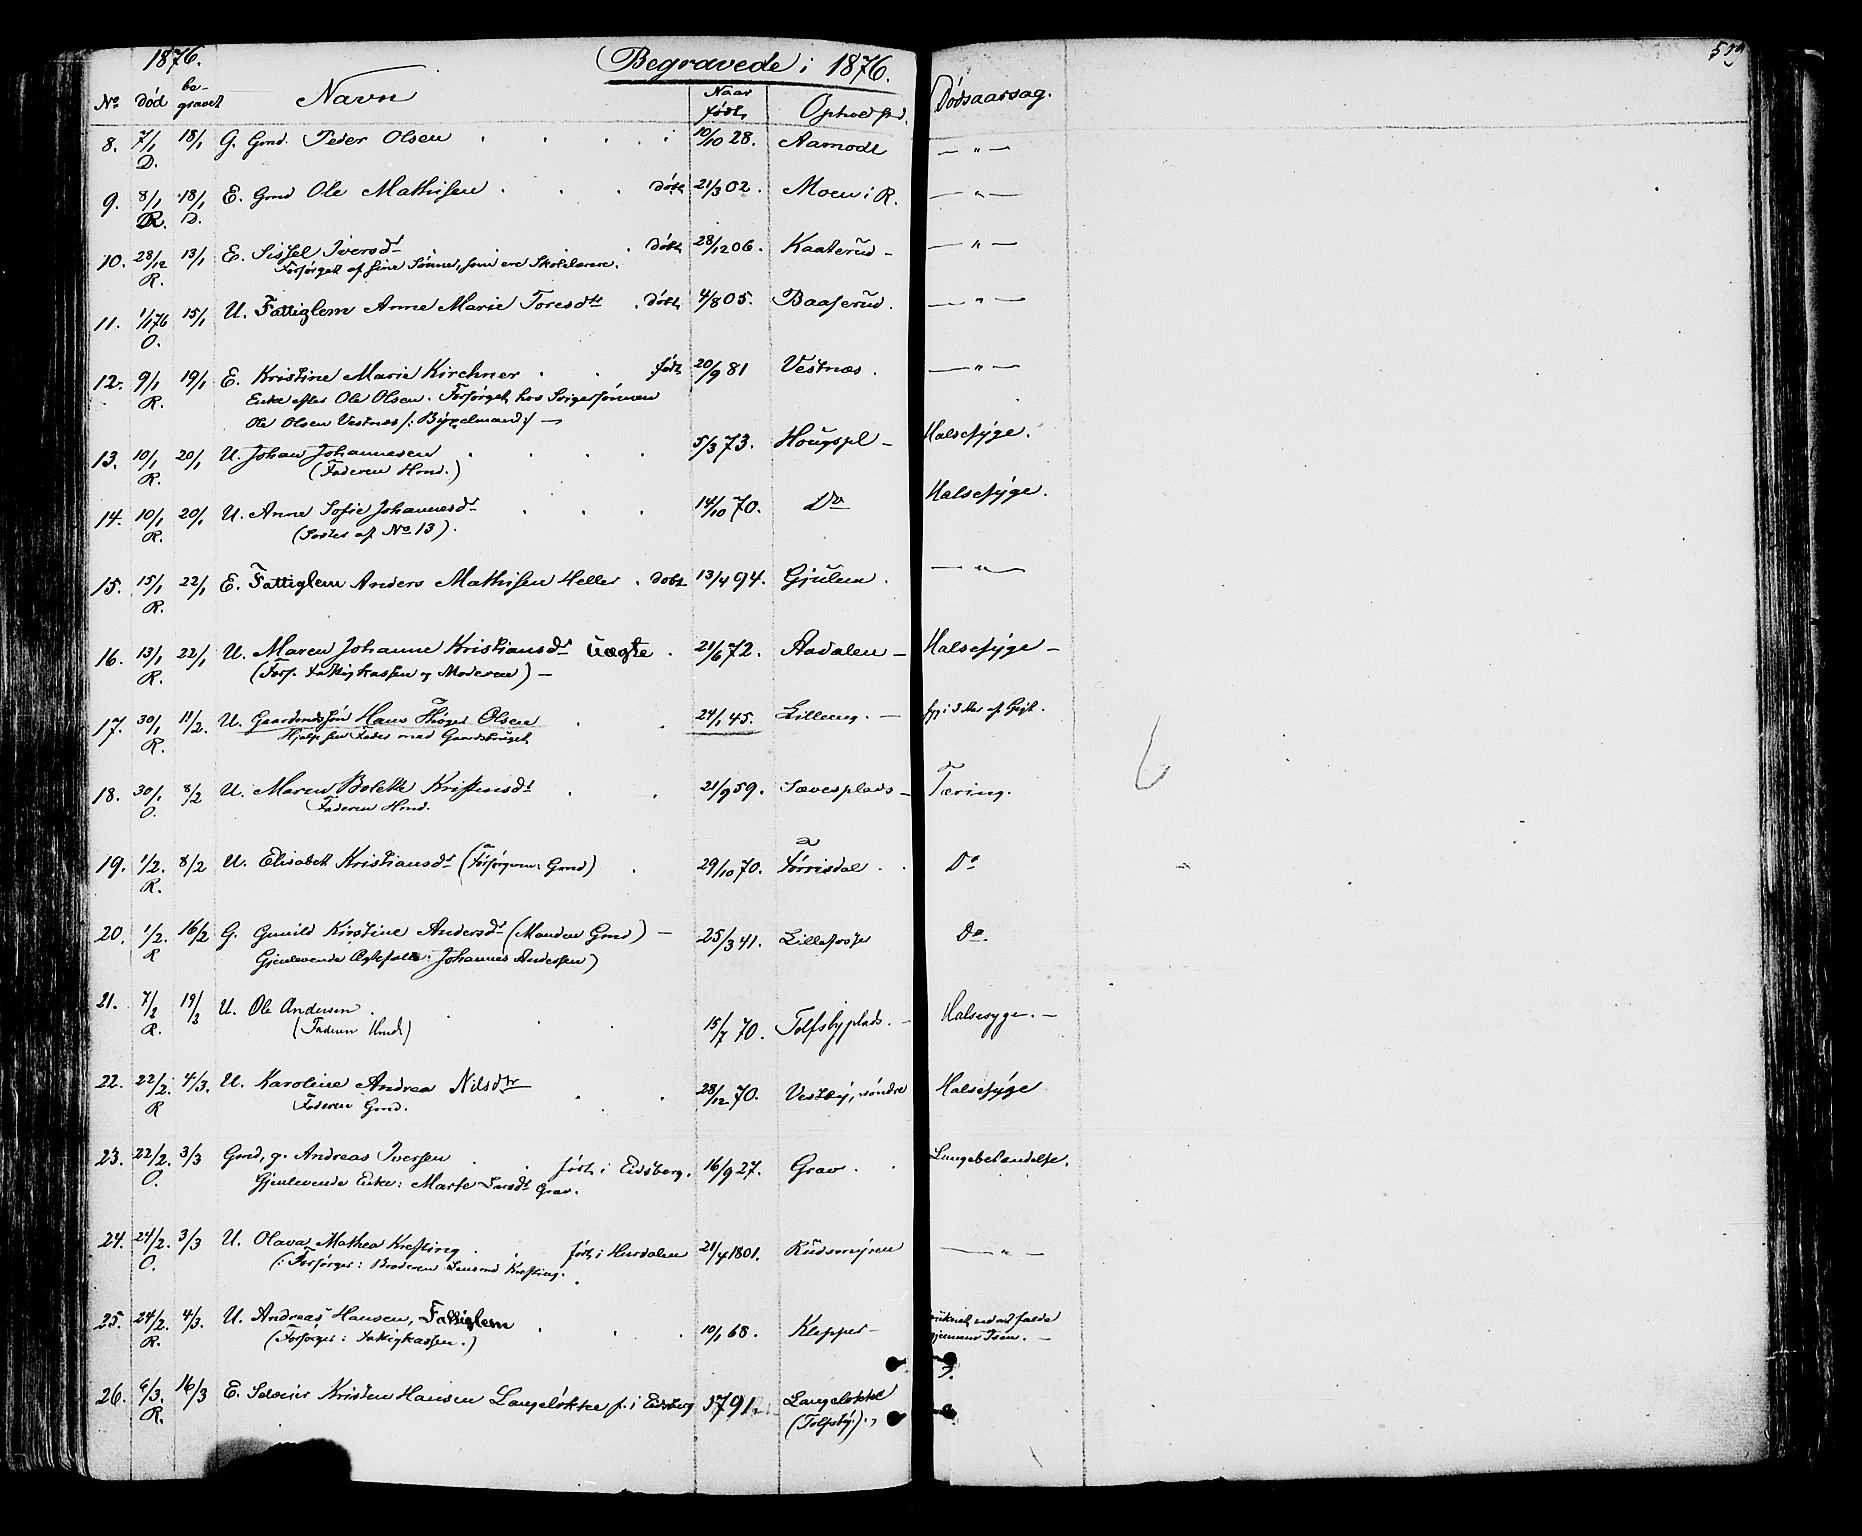 1876. Begravede i 1876. 529
No død be-gravet Navn Naar født Opholdsted. Dødsaarsag.
8. 7/1 18/1 G. Gmd. Peder Olsen 10/10 28. Aamodt — " —
D.
9. 8/1 18/1 E. Gmd Ole Mathisen døbt 21/3 02. Moen i R. — " —
R. D.
10. 28/12 13/1 E. Sissel Iversdt døbt 28/12 06. Kaaterud — — " —
R. Forsørget af sine Sønner, som ere Skolelærere.
11. 1/1 76 15/1 U. Fattiglem Anne Marie Toresdtr døbt 4/8 05. Baaserud. — " —
O.
12. 9/1 19/1 E. Kristine Marie Kirchner født 20/9 81 Vestnæs. — " —
R. Enke efter Ole Olsen. Forsørget hos Svigersønnen
Ole Olsen Vestnæs /: Bygselmand :/ —
13. 10/1 20/1 U. Johan Johannesen 5/3 73. Hougspl — Halsesyge.
R. (Faderen Hmd.)
14. 10/1 20/1 U. Anne Sofie Johannesdt 14/10 70. Do Halsesyge.
R. (Søster af No 13).
15. 15/1 22/1 E. Fattiglem Anders Mathisen Heller døbt 13/4 94. Gjulem. — " —
R.
16. 13/1 22/1 U. Maren Johanne Kristiansdt uægte. 21/6 72. Aadalen — Halsesyge —
R. (Fors. Fattigkassen og Moderen) —
17. 30/1 11/2. U. Gaardmdssøn Hans Thoger Olsen 24/1 45. Lilleng. — syg i 3 Aar af Gigt.
R. Hjalp sin Fader med Gaardsbruget
18. 30/1 8/2 U. Maren Bolette Kristensdt 21/9 59. Sævesplads — Tæring.
O. (Faderen Hmd.
19. 1/2. 8/2 U. Elisabet Kristiansdt (Forsørgeren: Gmd) 29/10 70. Torrisdal. Do
R.
20. 1/2. 16/2 G. Gunild Kirstine Andersdt (Manden Gmd) — 25/3 41. Lillefosse Do.
R Gjenlevende Ægtefælle: Johannes Andersen)
21. 7/2 19/3 U. Ole Andersen. 15/7 70. Tolfsbyplads. — Halsesyge. —
R. (Faderen Hmd.)
22. 22/2. 4/3. U. Karoline Andrea Nilsdtr 28/12 70. Vestby, søndre Halsesyge
R Faderen Gmd.
23. 22/2. 3/3 Gmd, g. Andreas Iversen født i Eidsberg. 16/9 27. Grav. Lungebetændelse.
O. Gjenlevende Enke: Marte Larsdt Grav.
24. 24/2. 3/3 U. Olava Mathea Krefting født i Hurdalen 21/4 1801. Rudsmyren — " —
O. (: Forsørger: Broderen Lensmd Krefting.
25. 24/2. 4/3. U. Andreas Hansen, Fattiglem 10/1 68. Klepper — druknet ved at falde
R. (Forsørger: Fattigkassen.) gjennem Isen. —
26. 6/3. 16/3 E. Selveier Kristen Hansen Langeløkke f. i Eidsberg 1791 Langeløkke ?.
R. (Tolfsby).